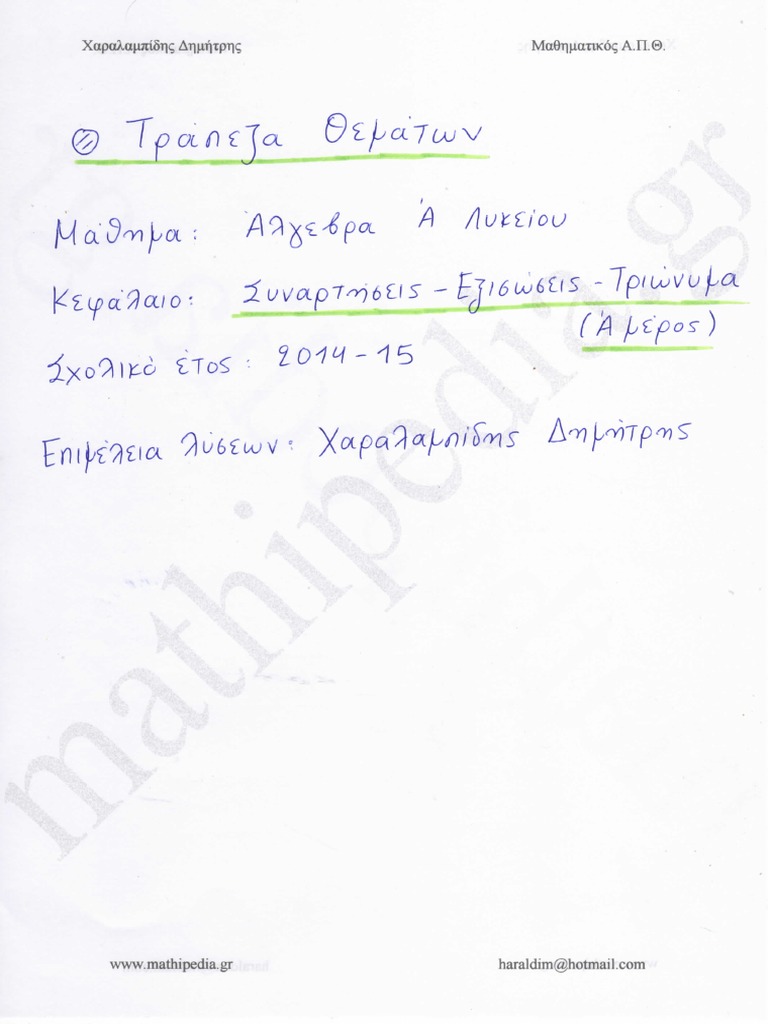 Χαραλαμπίδης Δημήτρης Μαθηματικός Α.Π.Θ.
Τράπεζα Θεμάτων
Μάθημα: Άλγεβρα Ά Λυκείου
Κεφάλαιο: Συναρτήσεις - Εξισώσεις - Τριώνυμα
(Ά μέρος)
Σχολικό έτος: 2014 - 15
Επιμέλεια λύσεων: Χαραλαμπίδης Δημήτρης
mathipedia.gr
www.mathipedia.gr haraldim@hotmail.com